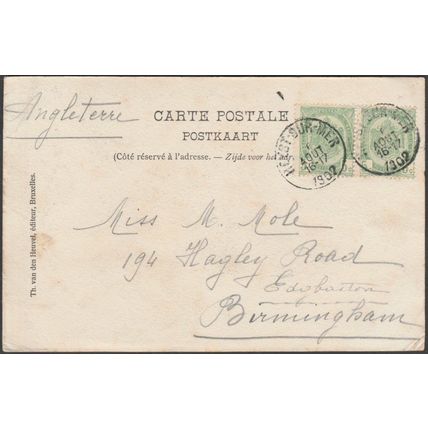 Angleterre
CARTE POSTALE
POSTKAART
(Côté réservé à l'adresse. — Zijde voor het
HEYST-SUR-MER
AOUT
16-17
1902
AOUT
16-17
1902
Miss M. Mole
194 Hagley Road
Edgbaston
Birmingham
Th. van den Heuvel, éditeur, Bruxelles.